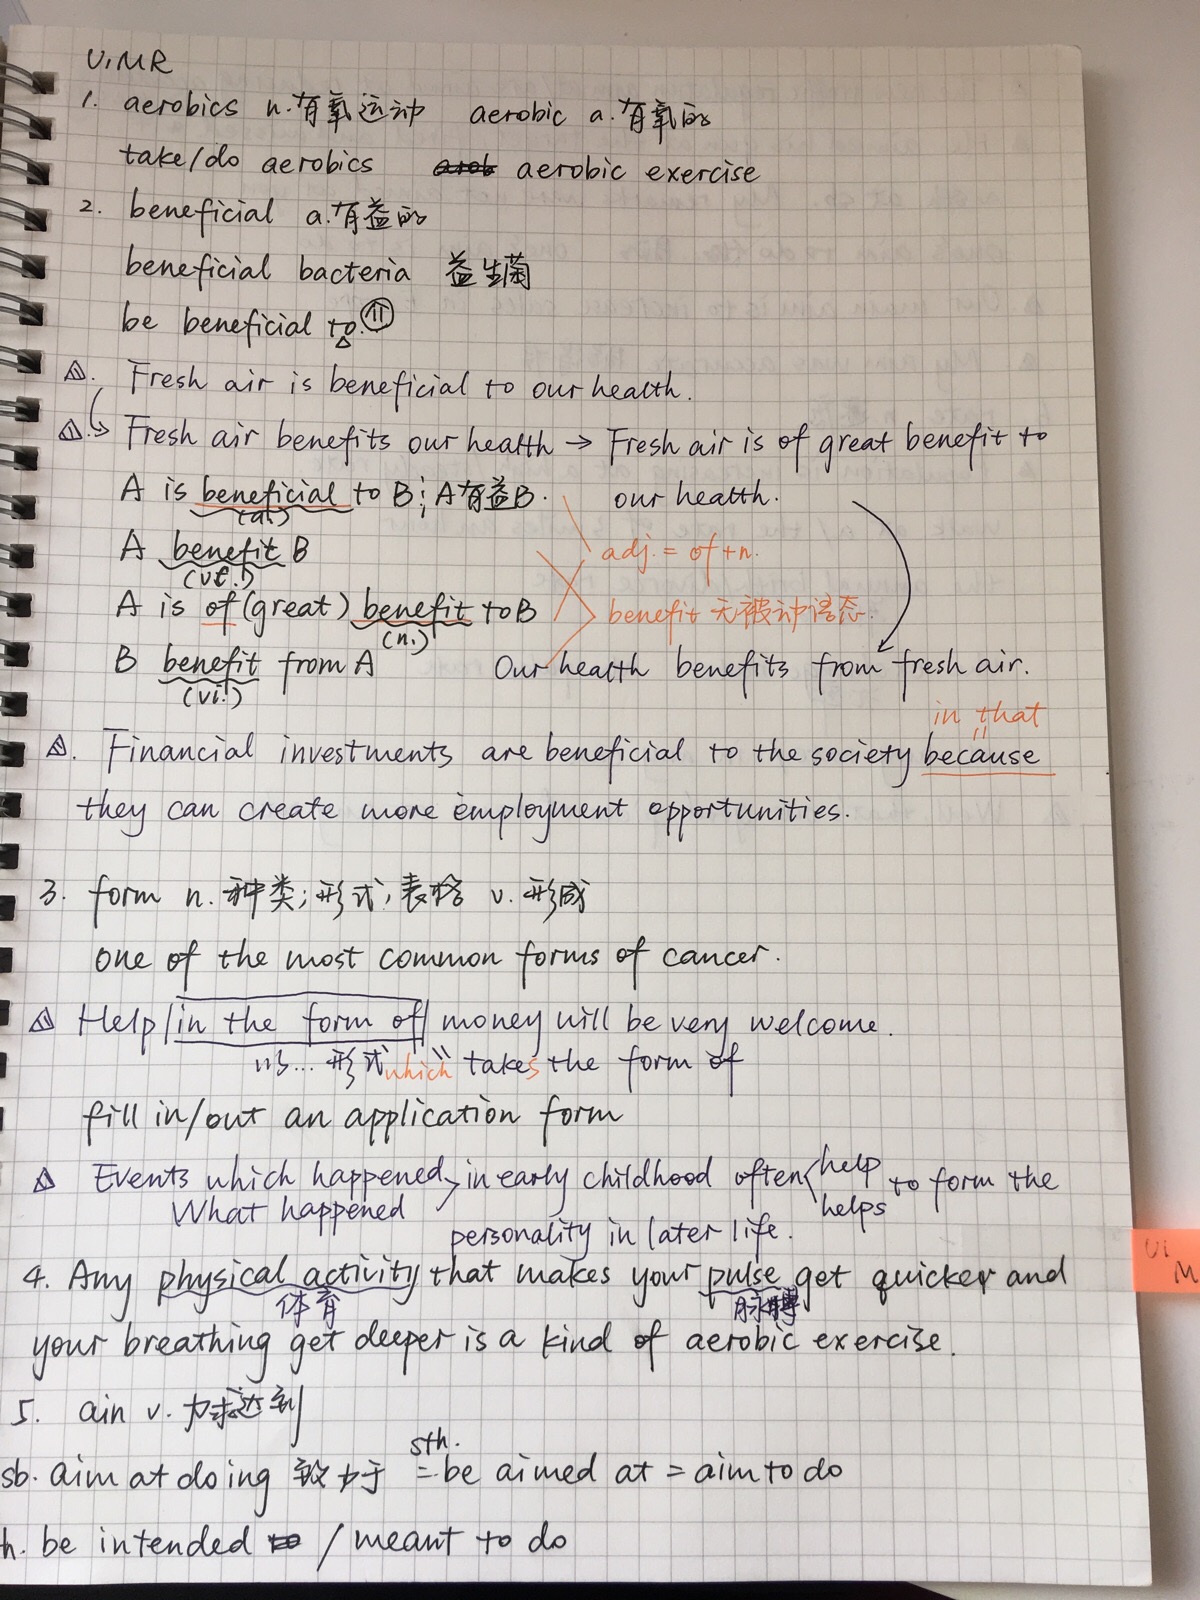 U1MR
1. aerobics n.有氧运动 aerobic a.有氧的
take/do aerobics aerobic exercise
2. beneficial a.有益的
beneficial bacteria 益生菌
be beneficial to.
Fresh air is beneficial to our health.
Fresh air benefits our health → Fresh air is of great benefit to
our health.
A is beneficial to B; A有益B.
(a.)
adj. = of + n.
A benefit B
(vt.)
A is of (great) benefit to B
(n.)
benefit 无被动语态.
B benefit from A Our health benefits from fresh air.
(vi.)
in that
Financial investments are beneficial to the society because
they can create more employment opportunities.
3. form n. 种类;形式;表格 v. 形成
one of the most common forms of cancer.
Help in the form of money will be very welcome.
以... 形式 which takes the form of
fill in/out an application form
Events which happened in early childhood often help to form the
What happened helps
personality in later life.
4. Any physical activity that makes your pulse get quicker and
体育 脉搏
your breathing get deeper is a kind of aerobic exercise.
5. ain v. 力求达到
sth.
sb. aim at doing 致力于 = be aimed at = aim to do
h. be intended / meant to do
U1
M